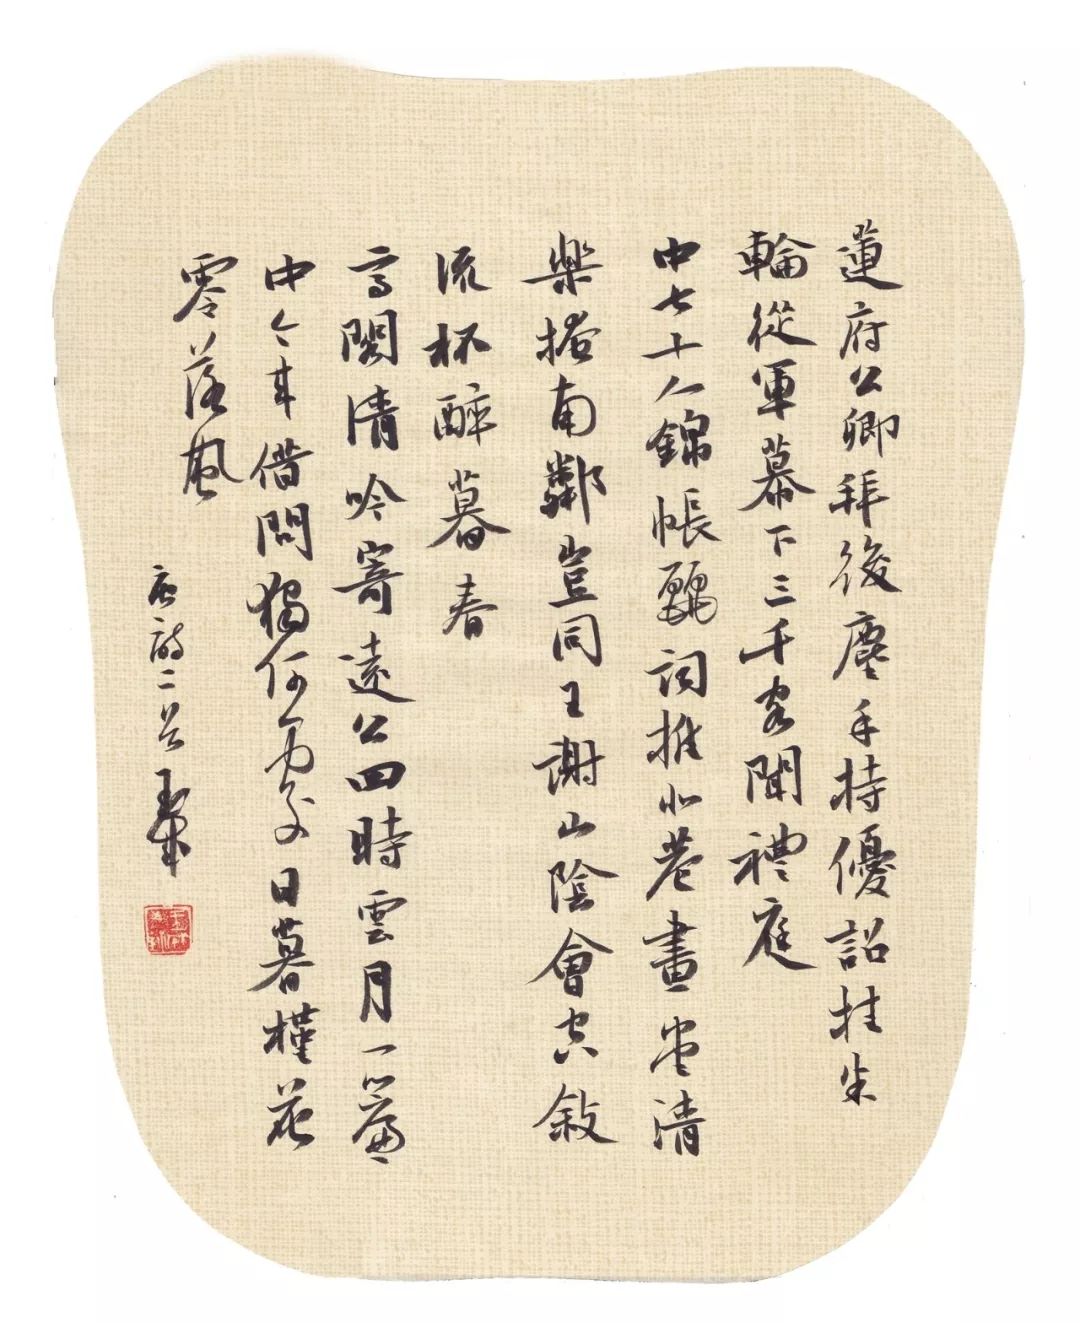 蓮府公卿拜後塵手持優詔挂朱
輪從軍幕下三千客聞禮庭
中七十人錦帳麗詞推北巷畫堂清
樂掩南鄰豈同王謝山陰會空敘
流杯醉暮春
高閣清吟寄遠公四時雲月一簾
中今年借問獨何處日暮槿花
零落風
唐詩二首